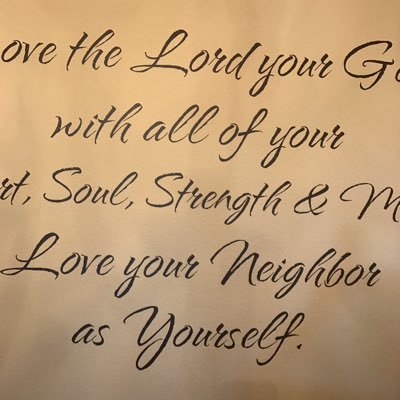 ove the Lord your G
with all of your
rt, Soul, Strength & M
Love your Neighbor
as Yourself.